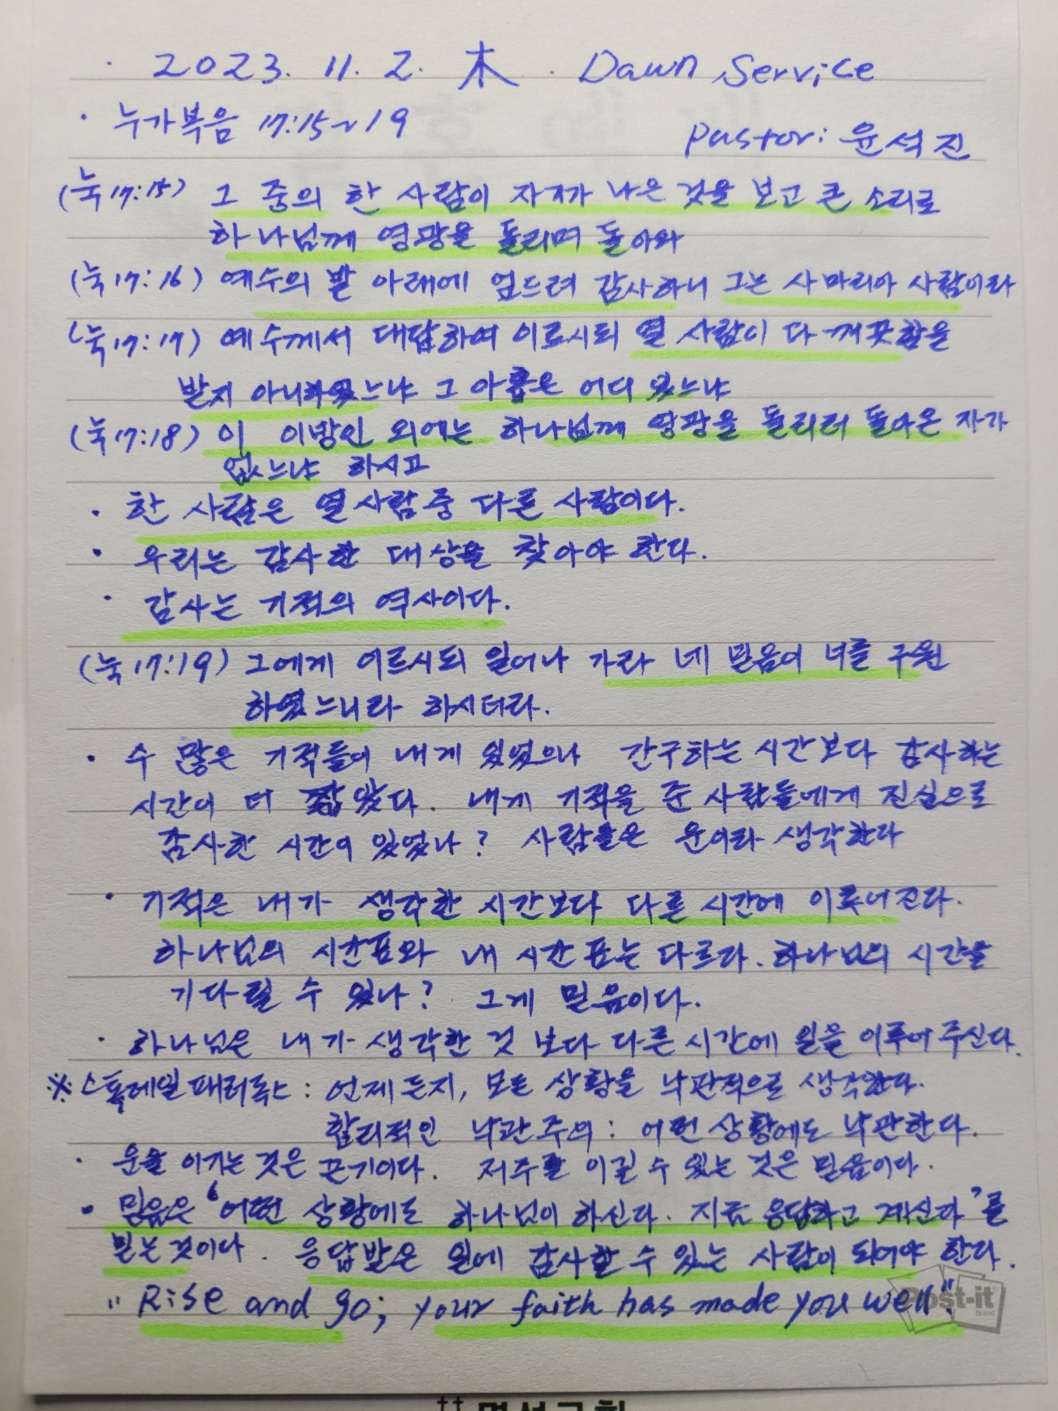 · 2023. 11. 2. 木. Dawn Service
· 누가복음 17:15~19
Pastor: 윤석진
(눅17:15) 그 중의 한 사람이 자기가 나은 것을 보고 큰 소리로
하나님께 영광을 돌리며 돌아와
(눅17:16) 예수의 발 아래에 엎드려 감사하니 그는 사마리아 사람이라
(눅17:17) 예수께서 대답하여 이르시되 열 사람이 다 깨끗함을
받지 아니하였느냐 그 아홉은 어디 있느냐
(눅17:18) 이 이방인 외에는 하나님께 영광을 돌리러 돌아온 자가
없느냐 하시고
· 한 사람은 열사람중 다른 사람이다.
· 우리는 감사한 대상을 찾아야 한다.
· 감사는 기적의 역사이다.
(눅17:19) 그에게 이르시되 일어나 가라 네 믿음이 너를 구원
하였느니라 하시더라.
· 수 많은 기적들이 내게 있었으나 간구하는 시간보다 감사하는
시간이 더 짧았다. 내게 기적을 준 사람들에게 진실으로
감사한 시간이 있었나? 사람들은 운이라 생각한다
· 기적은 내가 생각한 시간보다 다른 시간에 이루어진다.
하나님의 시간표와 내 시간표는 다르다. 하나님의 시간을
기다릴 수 있나? 그게 믿음이다.
· 하나님은 내가 생각한 것 보다 다른 시간에 일을 이루어 주신다.
※ 스톡데일패러독스 : 언제든지, 모든 상황을 낙관적으로 생각한다.
합리적인 낙관주의 : 어떤 상황에도 낙관한다.
· 운을 이기는 것은 끈기이다. 저주를 이길 수 있는 것은 믿음이다.
· 믿음은 ‘어떤 상황에도 하나님이 하신다. 지금 응답하고 계신다’를
믿는 것이다. 응답받은 일에 감사할 수 있는 사람이 되어야 한다.
" Rise and go; your faith has made you well".
Post-it